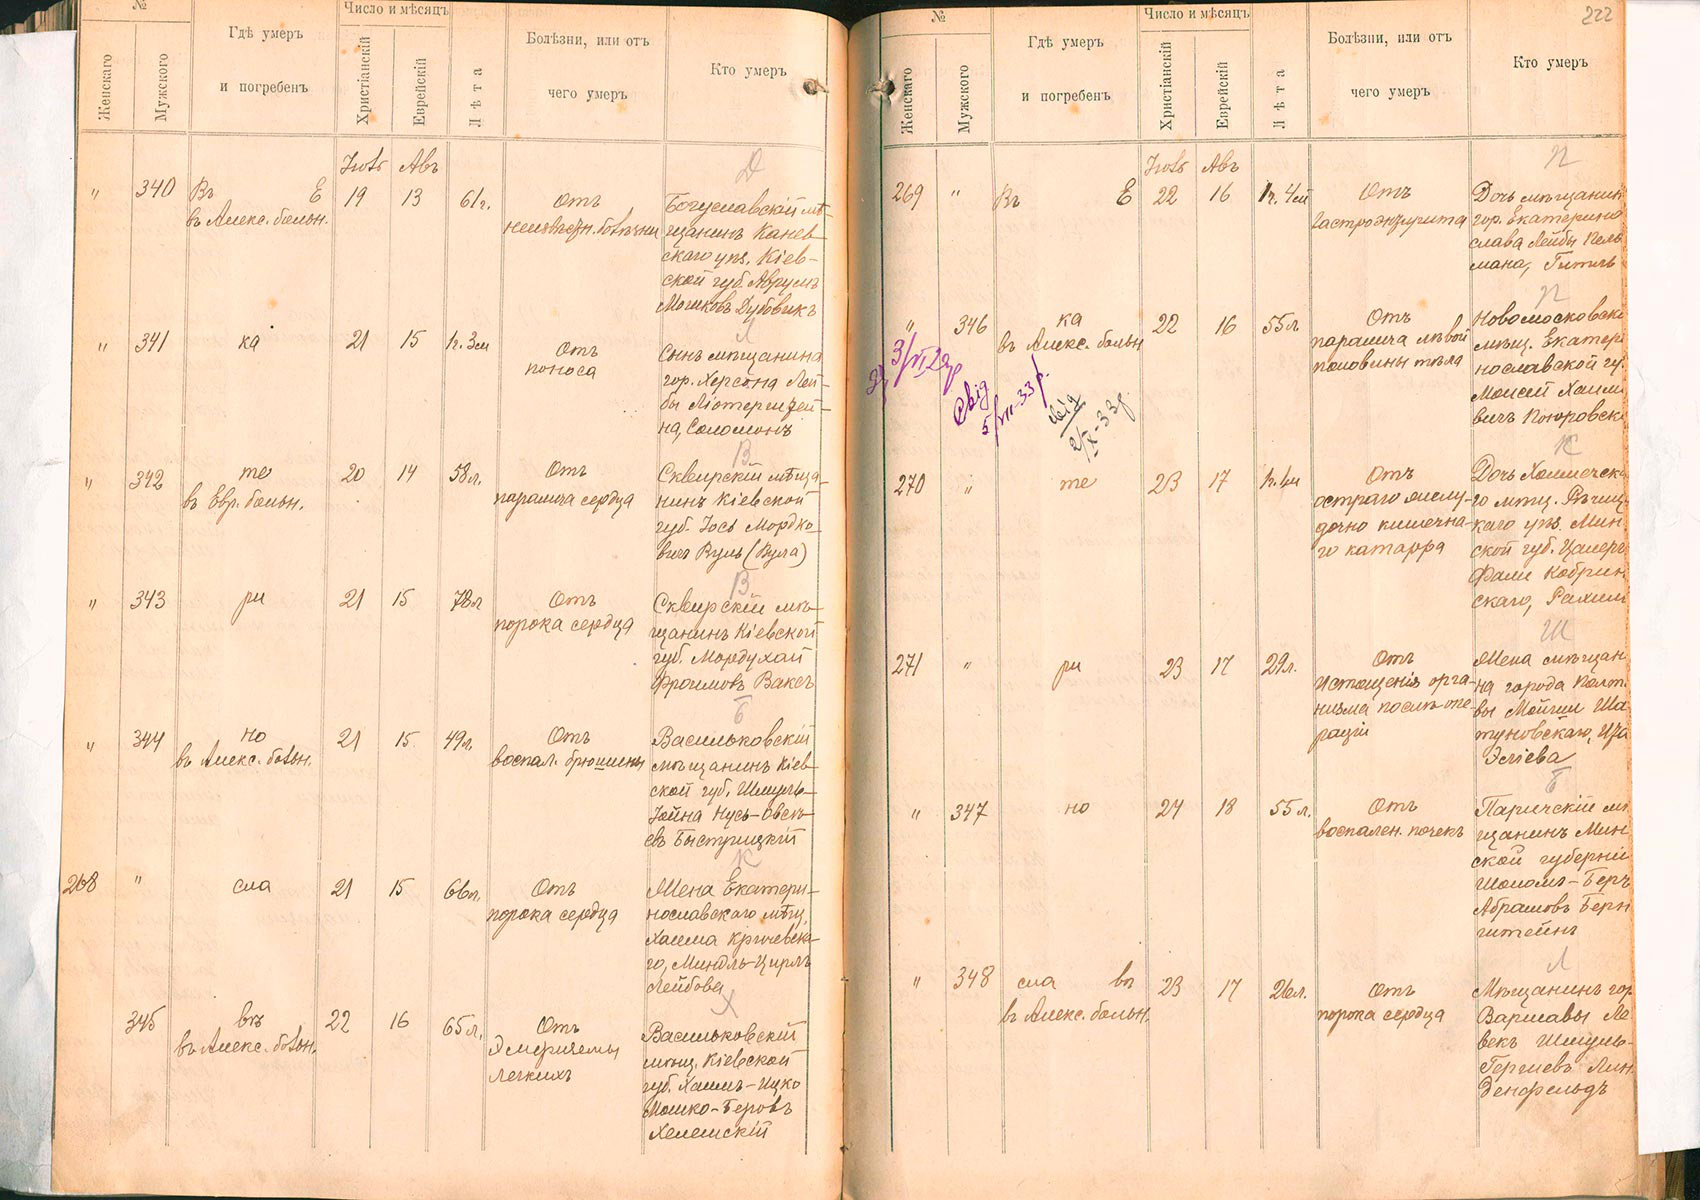 №
Число и мѣсяцъ
Женскаго
Мужского
Гдѣ умеръ
и погребенъ
Христіанскій
Еврейскій
Лѣта
Болѣзни, или отъ
чего умеръ
Кто умеръ
Іюль Авъ
Д
" 340 Въ Е
въ Алекс. больн.
19 13 61 г.
Отъ
неизвѣстн. болѣзни
Богуславскій мѣ-
щанинъ Канев-
скаго уѣз. Кіев-
ской губ. Аврумъ
Мошковъ Дубовикъ
Л
" 341 ка 21 15 1 г. 3 м
Отъ
поноса
Сынъ мѣщанина
гор. Херсона Лей-
бы
на, Соломонъ
В
" 342 те
въ Евр. больн.
20 14 58 л.
Отъ
паралича сердца
Сквирскій мѣща-
нинъ Кіевской
губ. Іось Мордко-
вичъ Вуль (Вула)
В
" 343 ри 21 15 78 л
Отъ
порока сердца
Сквирскій мѣ-
щанинъ Кіевской
губ. Мордухай
Фроимовъ Ваксъ
Б
" 344 но
въ Алекс. больн.
21 15 49 л.
Отъ
воспал. брюшины
Васильковскій
мѣщанинъ Кіев-
ской губ. Шмуль-
Іойна Нусь-Овсѣ-
евъ Быстрицкій
К
268 " сла 21 15 66 л.
Отъ
порока сердца
Жена Екатери-
нославскаго мѣщ.
Хаима Кричевска-
го, Миндль-Цирль
Лейбова
Х
345 въ
въ Алекс. больн.
22 16 65 л.
Отъ
Эмфиземы
легкихъ
Васильковскій
мѣщ. Кіевской
губ. Хаимъ-Ицко
Мошко-Беровъ
Хелемскій
222
№
Число и мѣсяцъ
Женскаго
Мужского
Гдѣ умеръ
и погребенъ
Христіанскій
Еврейскій
Лѣта
Болѣзни, или отъ
чего умеръ
Кто умеръ
Іюль Авъ
П
269 " Въ Е 22 16 1 г. 4 м
Отъ
гастроэнтерита
Дочь мѣщанин
гор. Екатерино
слава Лейбы Пель
мана, Гитль
П
" 346 ка
въ Алекс. больн
22 16 55 л.
Отъ
паралича лѣвой
половины тѣла
Новомосковск
мѣщ. Екатери
нославской гу.
Моисей Хаим
вичъ
свід
5/VII-33 р.
свід
2/IX-33 р.
К
270 " те 23 17 1 г. 1 м
Отъ
остраго желу-
дочно кишечна-
го катарра
Дочь Холмечска
го мѣщ. Рѣчиц
каго уѣз. Мин
ской губ.
Фали Кобрин
скаго,
Ш
271 " ри 23 17 29 л.
Отъ
истощенія орга-
низма послѣ опе-
раціи
Жена мѣщан
на города Полт
вы Мойши Ша
туновскаго,
Эліева
Б
" 347 но 24 18 55 л.
Отъ
воспален. почекъ
Паричскій мѣ
щанинъ Мин
ской губерніи
Шоломъ-Беръ
Абрамовъ Берн
штейнъ
Л
" 348 сла въ
въ Алекс. больн.
23 17 26 л.
Отъ
порока сердца
Мѣщанинъ гор
Варшавы Ле
векъ Шмуль-
Гершевъ Лин
денфельдъ